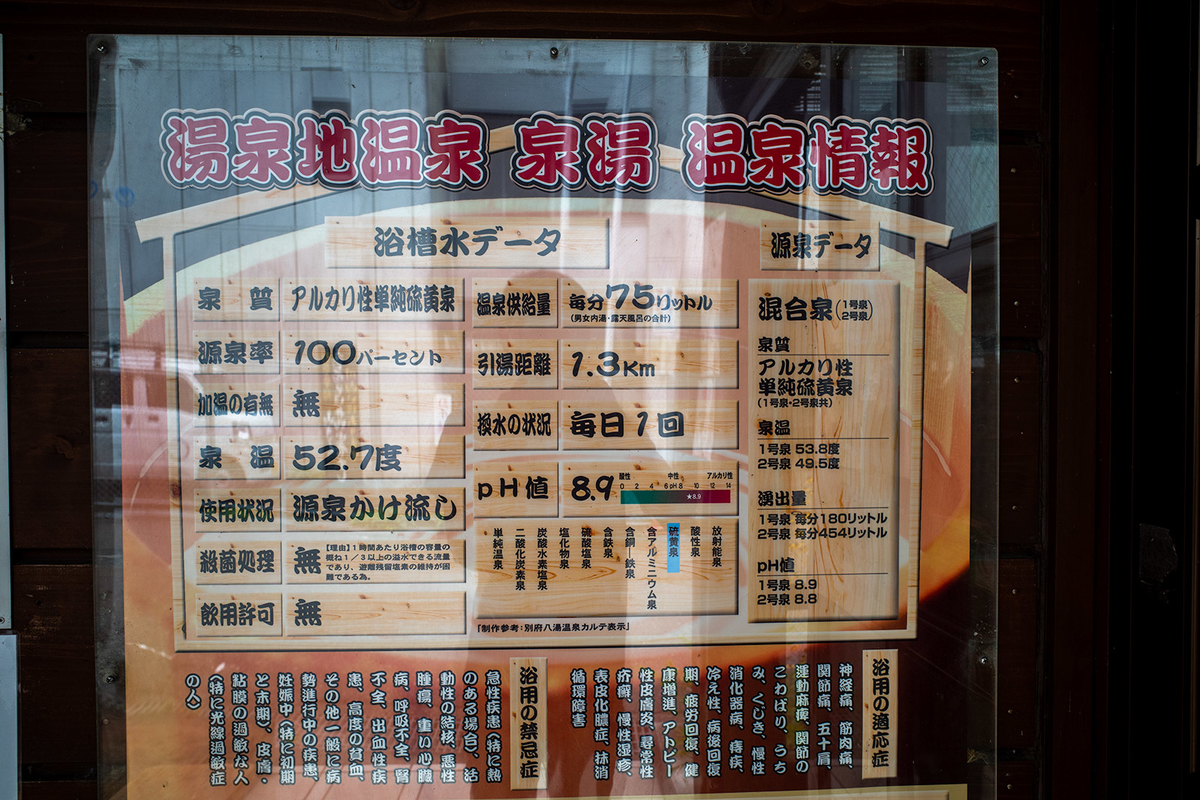 湯泉地温泉 泉湯 温泉情報
浴槽水データ
泉質 アルカリ性単純硫黄泉
源泉率 100パーセント
加温の有無 無
泉温 52.7度
使用状況 源泉かけ流し
殺菌処理 無
【理由】1時間あたり浴槽の容量の
概ね1/3以上の溢水できる流量
であり、遊離残留塩素の維持が困
難である為。
飲用許可 無
温泉供給量 毎分75リットル
(男女内湯・露天風呂の合計)
引湯距離 1.3Km
換水の状況 毎日1回
pH値 8.9
酸性 中性 アルカリ性
0 2 4 6 pH 8 10 12 14
★8.9
単純温泉
二酸化炭素泉
炭酸水素塩泉
塩化物泉
硫酸塩泉
含鉄泉
含銅—鉄泉
含アルミニウム泉
硫黄泉
酸性泉
放射能泉
「制作参考:別府八湯温泉カルテ表示」
源泉データ
混合泉(1号泉 2号泉)
泉質
アルカリ性
単純硫黄泉
(1号泉・2号泉共)
泉温
1号泉 53.8度
2号泉 49.5度
湧出量
1号泉 毎分180リットル
2号泉 毎分454リットル
pH値
1号泉 8.9
2号泉 8.8
浴用の適応症
神経痛、筋肉痛、
関節痛、五十肩、
運動麻痺、関節の
こわばり、うち
み、くじき、慢性
消化器病、痔疾、
冷え性、病後回復
期、疲労回復、健
康増進、アトピー
性皮膚炎、尋常性
疥癬、慢性湿疹、
表皮化膿症、抹消
循環障害
浴用の禁忌症
急性疾患(特に熱
のある場合)、活
動性の結核、悪性
腫瘍、重い心臓
病、呼吸不全、腎
不全、出血性疾
患、高度の貧血、
その他一般に病
勢進行中の疾患、
妊娠中(特に初期
と末期)、皮膚・
粘膜の過敏な人
(特に光線過敏症
の人)